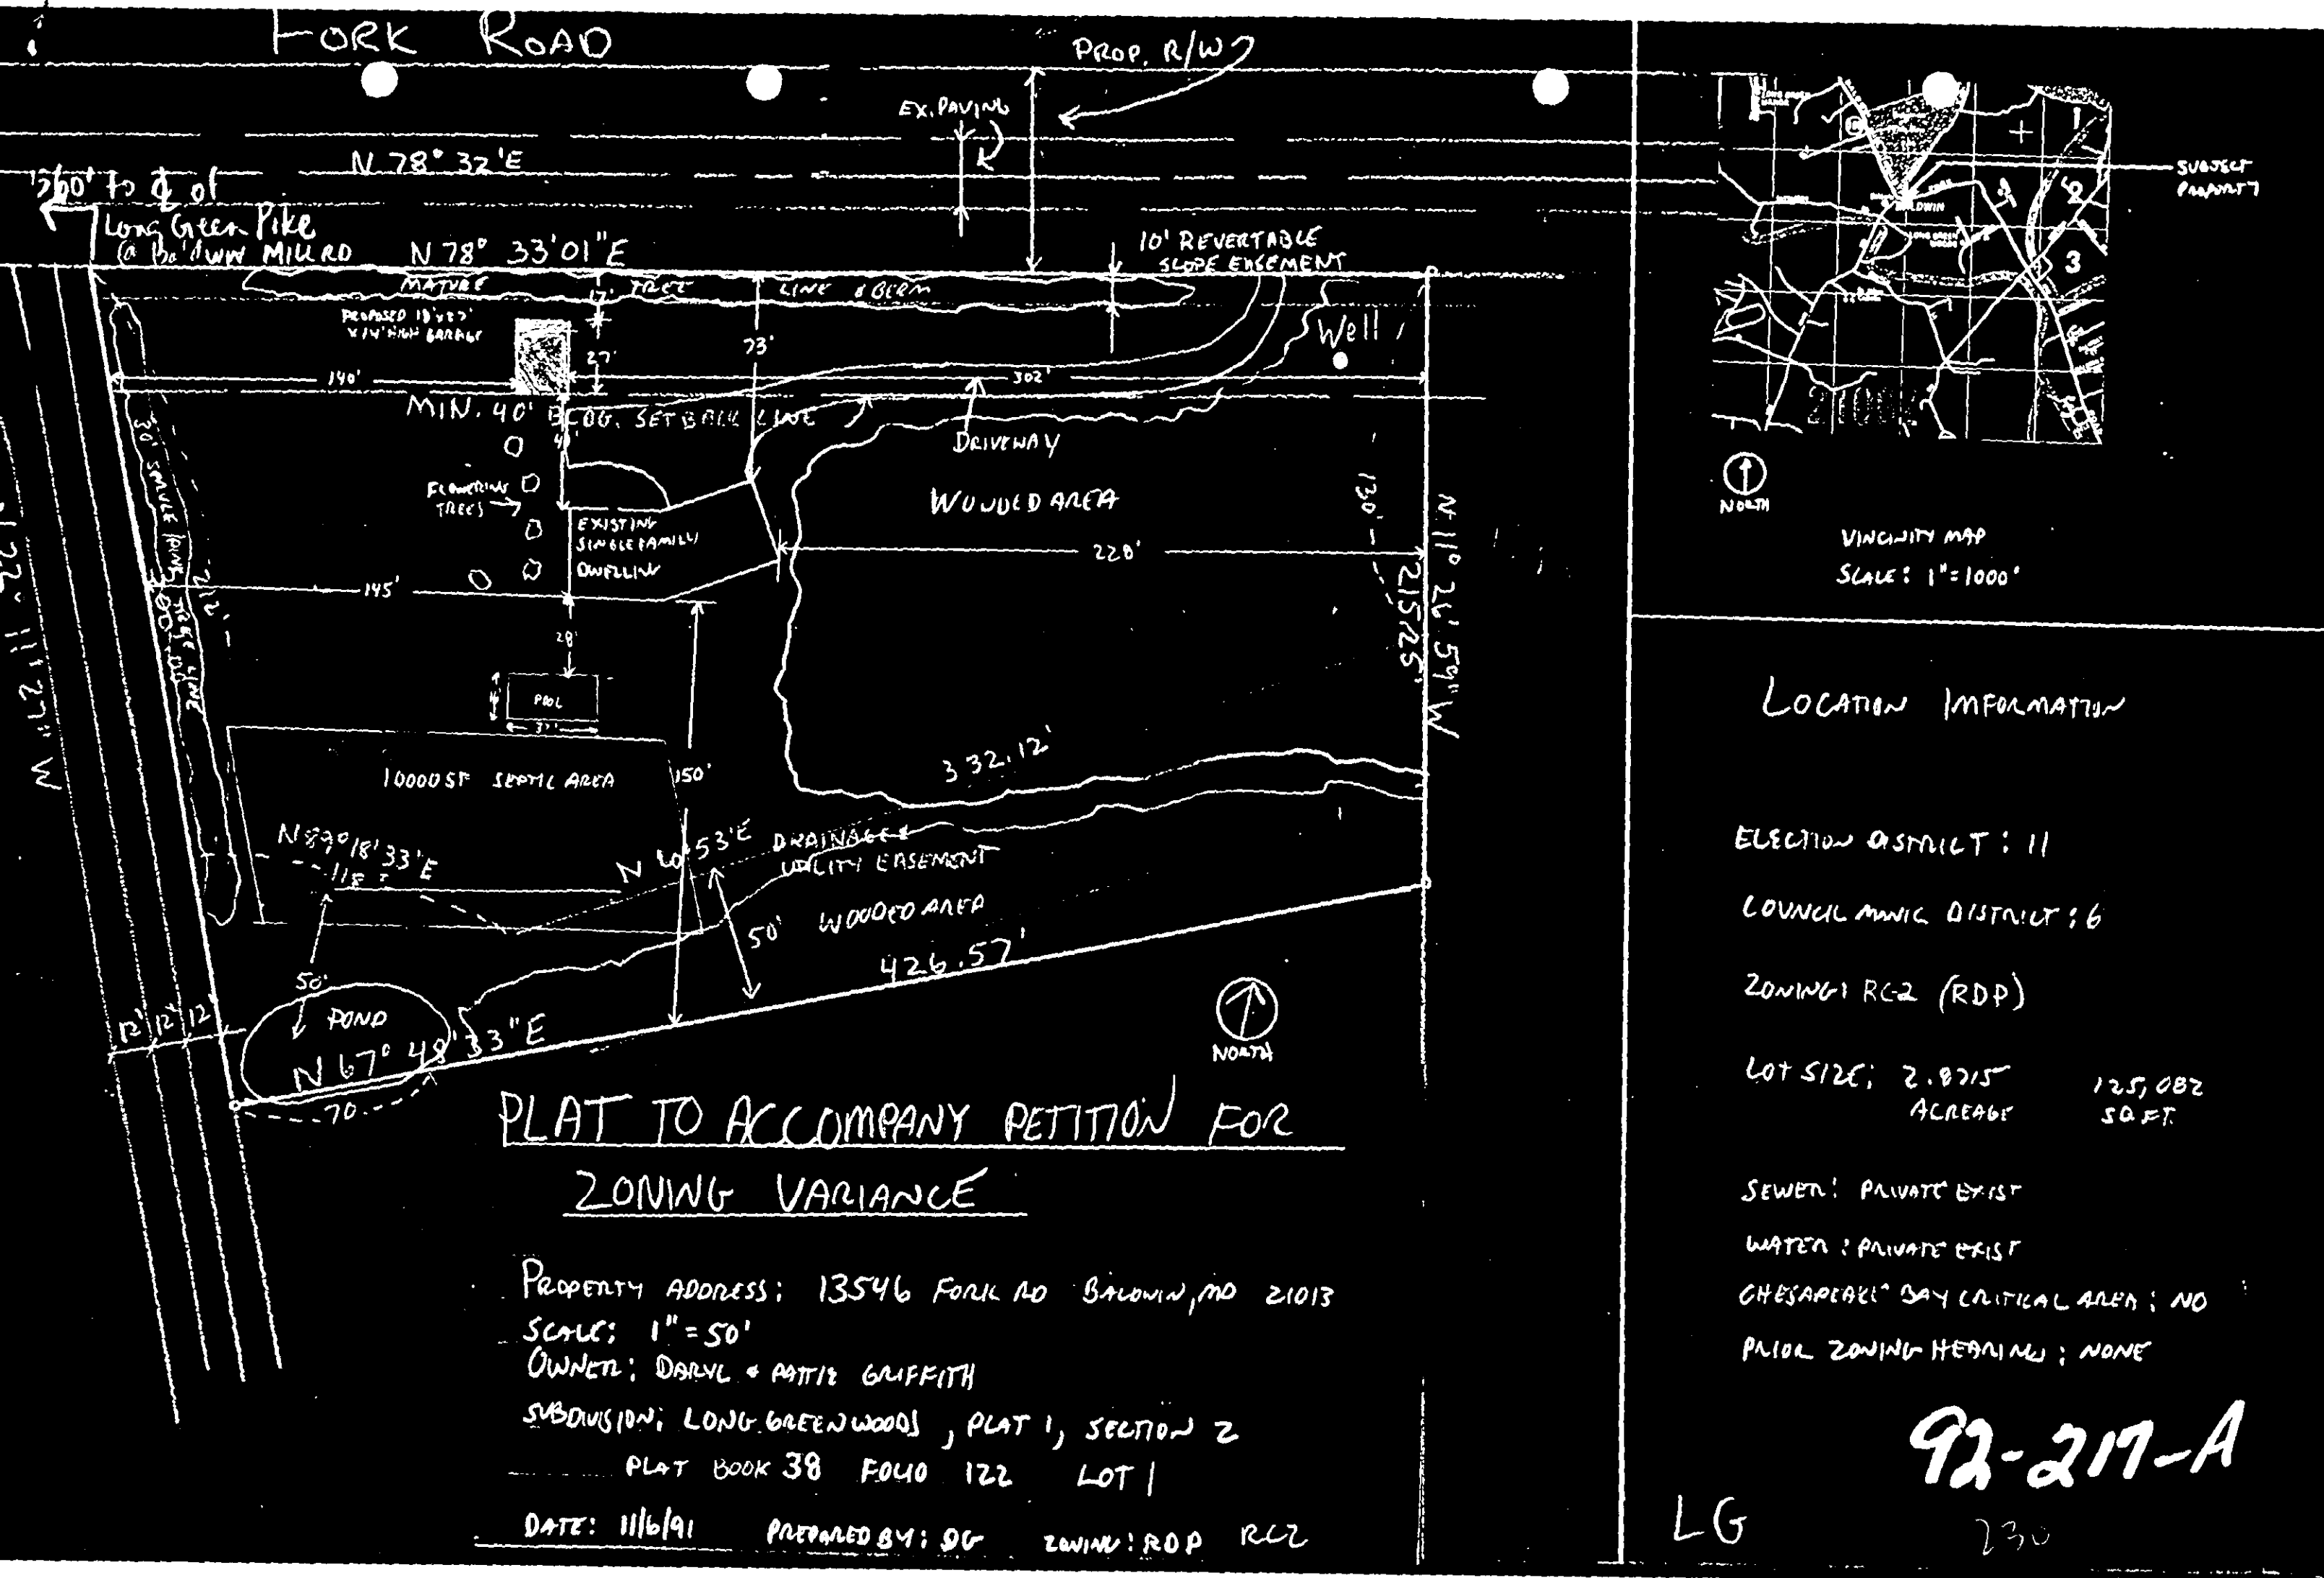 FORK ROAD
PROP. R/W
EX. PAVING
N 78° 32'E
to ℄ of
Long Green Pike
@ Baldwin MILL RD
N 78° 33'01"E
10' REVERTABLE
SLOPE EASEMENT
MATURE TREE LINE & BERM
17'
PROPOSED 18'x27'
x14' HIGH GARAGE
27'
73'
Well
140'
302'
MIN. 40' BLDG. SETBACK LINE
DRIVEWAY
FLOWERING
TREES
WOODED AREA
EXISTING
SINGLE FAMILY
DWELLING
220'
130'
N 11° 26' 59" W
215.25'
145'
28'
POOL
150'
332.12'
10000 SF SEPTIC AREA
N 89° 18' 33"E
118
DRAINAGE &
UTILITY EASEMENT
50'
WOODED AREA
426.57'
50'
POND
12' 12' 12
N 67° 48' 33" E
70
NORTH
PLAT TO ACCOMPANY PETITION FOR
ZONING VARIANCE
PROPERTY ADDRESS: 13546 FORK RD BALDWIN, MD 21013
SCALE: 1" = 50'
OWNER: DARYL & PATTIE GRIFFITH
SUBDIVISION: LONG GREEN WOODS, PLAT 1, SECTION 2
PLAT BOOK 38 FOLIO 122 LOT 1
DATE: 11/6/91 PREPARED BY: DG ZONING: RDP RC2
BALDWIN
1
2
3
SUBJECT
PROPERTY
NORTH
VINCINITY MAP
SCALE: 1"=1000'
LOCATION INFORMATION
ELECTION DISTRICT: 11
COUNCILMANIC DISTRICT: 6
ZONING: RC-2 (RDP)
LOT SIZE: 2.8715 125,082
ACREAGE SQ. FT.
SEWER: PRIVATE EXIST
WATER: PRIVATE EXIST
CHESAPEAKE BAY CRITICAL AREA: NO
PRIOR ZONING HEARING: NONE
92-217-A
LG
230